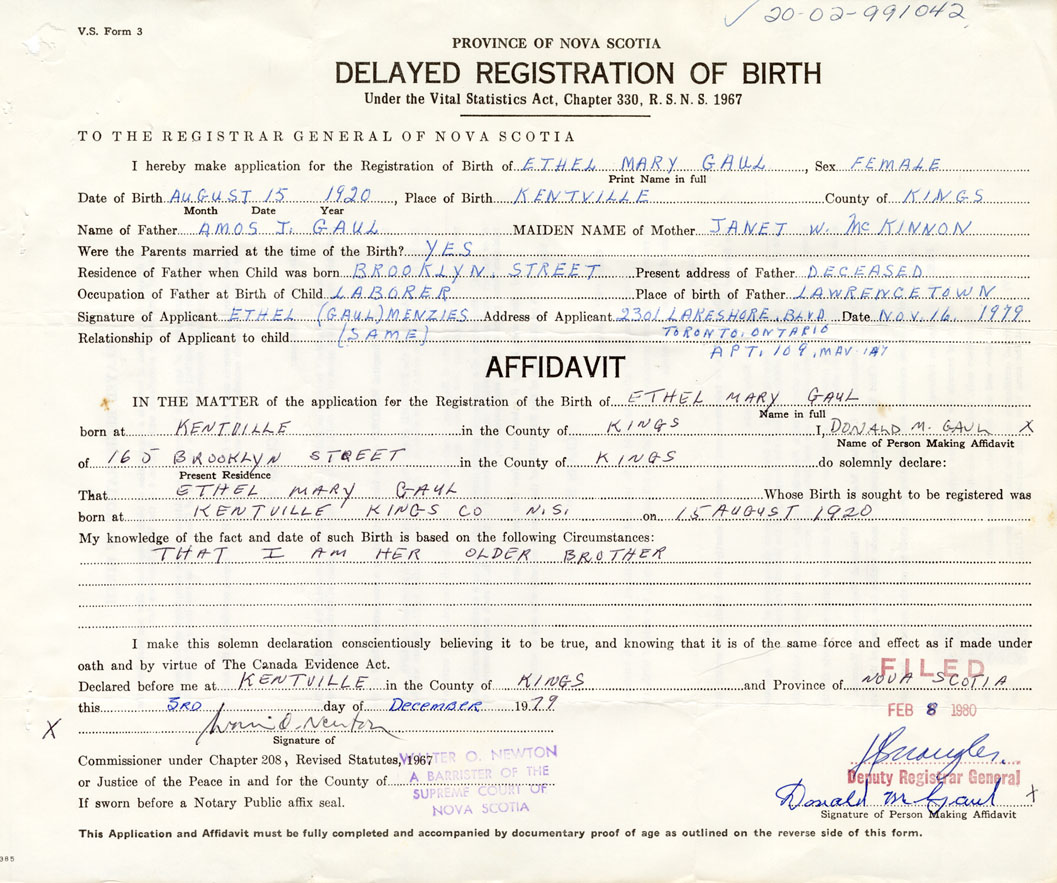 V.S. Form 3
✓ 20-02-991042
PROVINCE OF NOVA SCOTIA
DELAYED REGISTRATION OF BIRTH
Under the Vital Statistics Act, Chapter 330, R.S.N.S. 1967
TO THE REGISTRAR GENERAL OF NOVA SCOTIA
I hereby make application for the Registration of Birth of ETHEL MARY GAUL, Sex FEMALE
Print Name in full
Date of Birth AUGUST 15 1920, Place of Birth KENTVILLE County of KINGS
Month Date Year
Name of Father AMOS J. GAUL MAIDEN NAME of Mother JANET W. McKINNON
Were the Parents married at the time of the Birth? YES
Residence of Father when Child was born BROOKLYN. STREET Present address of Father DECEASED
Occupation of Father at Birth of Child LABORER Place of birth of Father LAWRENCETOWN
Signature of Applicant ETHEL (GAUL) MENZIES Address of Applicant 2301 LAKESHORE. BLVD Date NOV. 16. 1979
Relationship of Applicant to child (SAME) TORONTO. ONTARIO
APT. 109, M8V 1A7
AFFIDAVIT
IN THE MATTER of the application for the Registration of the Birth of ETHEL MARY GAUL
Name in full
born at KENTVILLE in the County of KINGS I, DONALD M. GAUL X
Name of Person Making Affidavit
of 165 BROOKLYN STREET in the County of KINGS do solemnly declare:
Present Residence
That ETHEL MARY GAUL Whose Birth is sought to be registered was
born at KENTVILLE KINGS CO N.S. on 15 AUGUST 1920
My knowledge of the fact and date of such Birth is based on the following Circumstances:
THAT I AM HER OLDER BROTHER
I make this solemn declaration conscientiously believing it to be true, and knowing that it is of the same force and effect as if made under
oath and by virtue of The Canada Evidence Act.
FILED
Declared before me at KENTVILLE in the County of KINGS and Province of NOVA SCOTIA
this 3RD day of DECEMBER 1979
FEB 8 1980
X
Signature of
Commissioner under Chapter 208, Revised Statutes, 1967
or Justice of the Peace in and for the County of
If sworn before a Notary Public affix seal.
WALTER O. NEWTON
A BARRISTER OF THE
SUPREME COURT OF
NOVA SCOTIA
Deputy Registrar General
Donald M Gaul X
Signature of Person Making Affidavit
This Application and Affidavit must be fully completed and accompanied by documentary proof of age as outlined on the reverse side of this form.
385